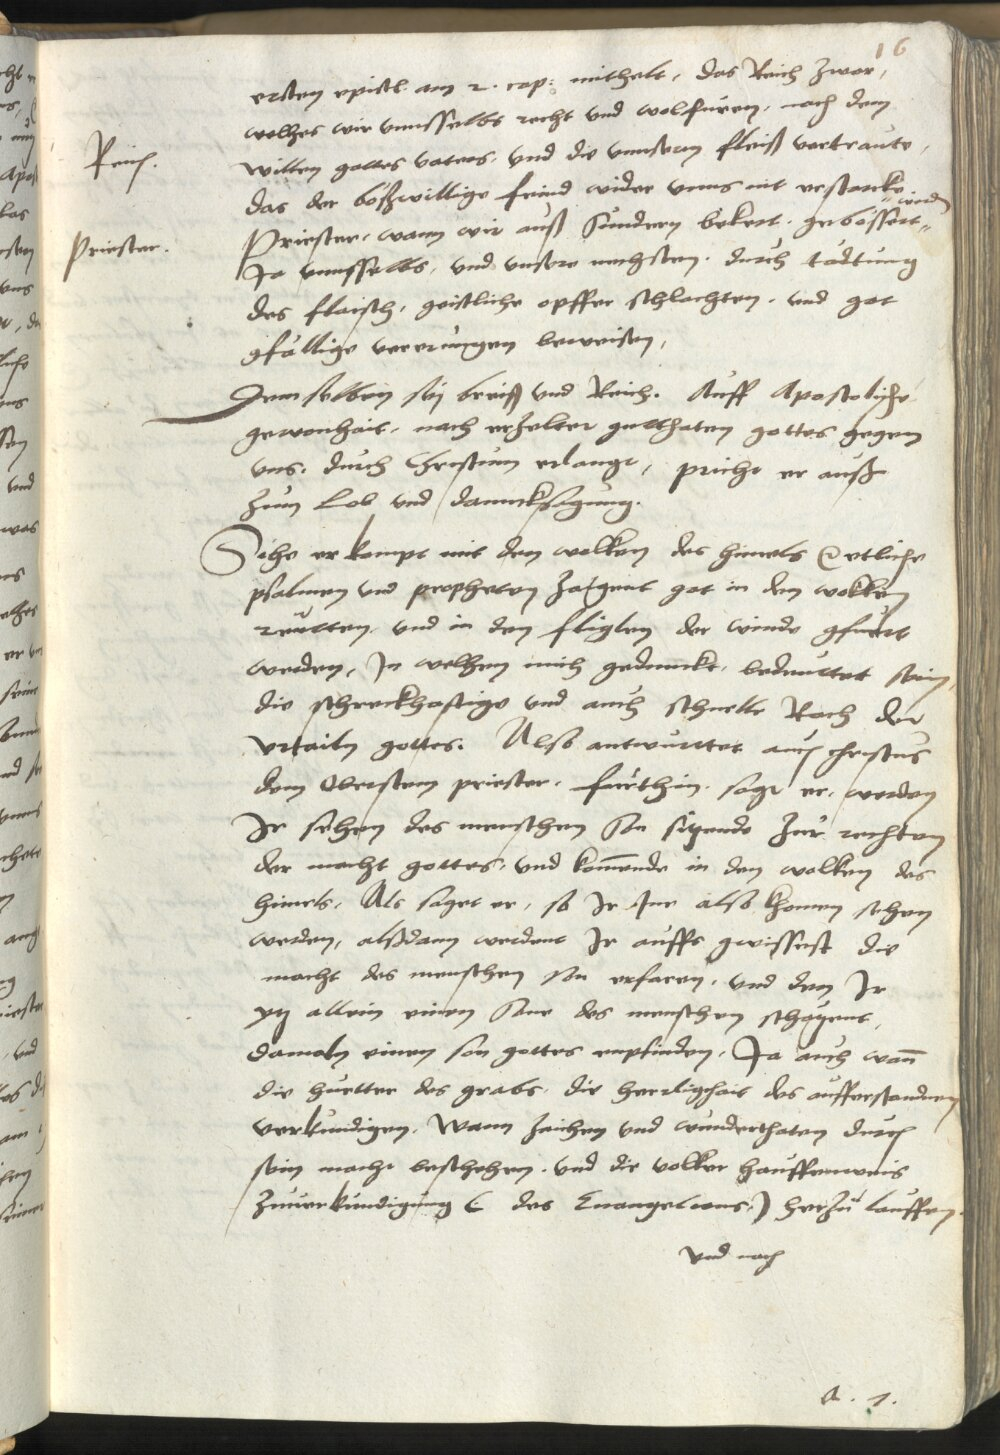 16
ersten epistl am 2. cap: mithelt, das Reich zwar,
welhes wir unnsselbs recht und wolfüren, nach dem
willen gottes vaters, und die unnserm fleiß vertraute,
das der bößwillige feind wider unns nit erstarcke.
Reich.
Priester, wann wir auß sundern bekert, gebössert werden
Priester.
Ja unnsselbs, und unsere nechsten, durch tödtung
des flaisch, geistliche opffer schlachten, und got
gfällige vererungen beweisen,
Demselben sej breiß und Reich. Auff Apostolische
gewonhait, nach erzelter gutthaten gottes gegen
uns, durch Christum erlangt, pricht er auß
zum Lob und dannckhsagung.
Sihe er kompt mit den wolken des himels etliche
psalmen und propheten zaigent got in den wolken
reütten, und in den fliglen der winde gfüert
werden, In welhem mich gedunckt, bedeuttet sein,
die schreckhaftige und auch schnelle Rach der
urtailn gottes. Also antwurttet auch christus
dem Obersten priester, fürthin, sagt er, werden
Ir sehen des menschen son sitzende zur rechten
der macht gottes, und kom̄ende in den wolken des
himels, Als saget er, so Ir Ine also khomen sehen
werden, alßdann werdent Ir auffs gwissest die
macht des menschen son erfaren, und den Ir
ytz allein einen sone des menschen schätzent,
damaln einen son gottes enpfinden, Ja auch wan̄
die huetter des grabs, die herrligchait des aufferstandnen
verkündigen, Wann zaichen und wunderthaten durch
sein macht beschehen, und die volker hauffenweis
zuverkündigung ( des Euangelions,) herzů lauffen,
und nach
A. 1.